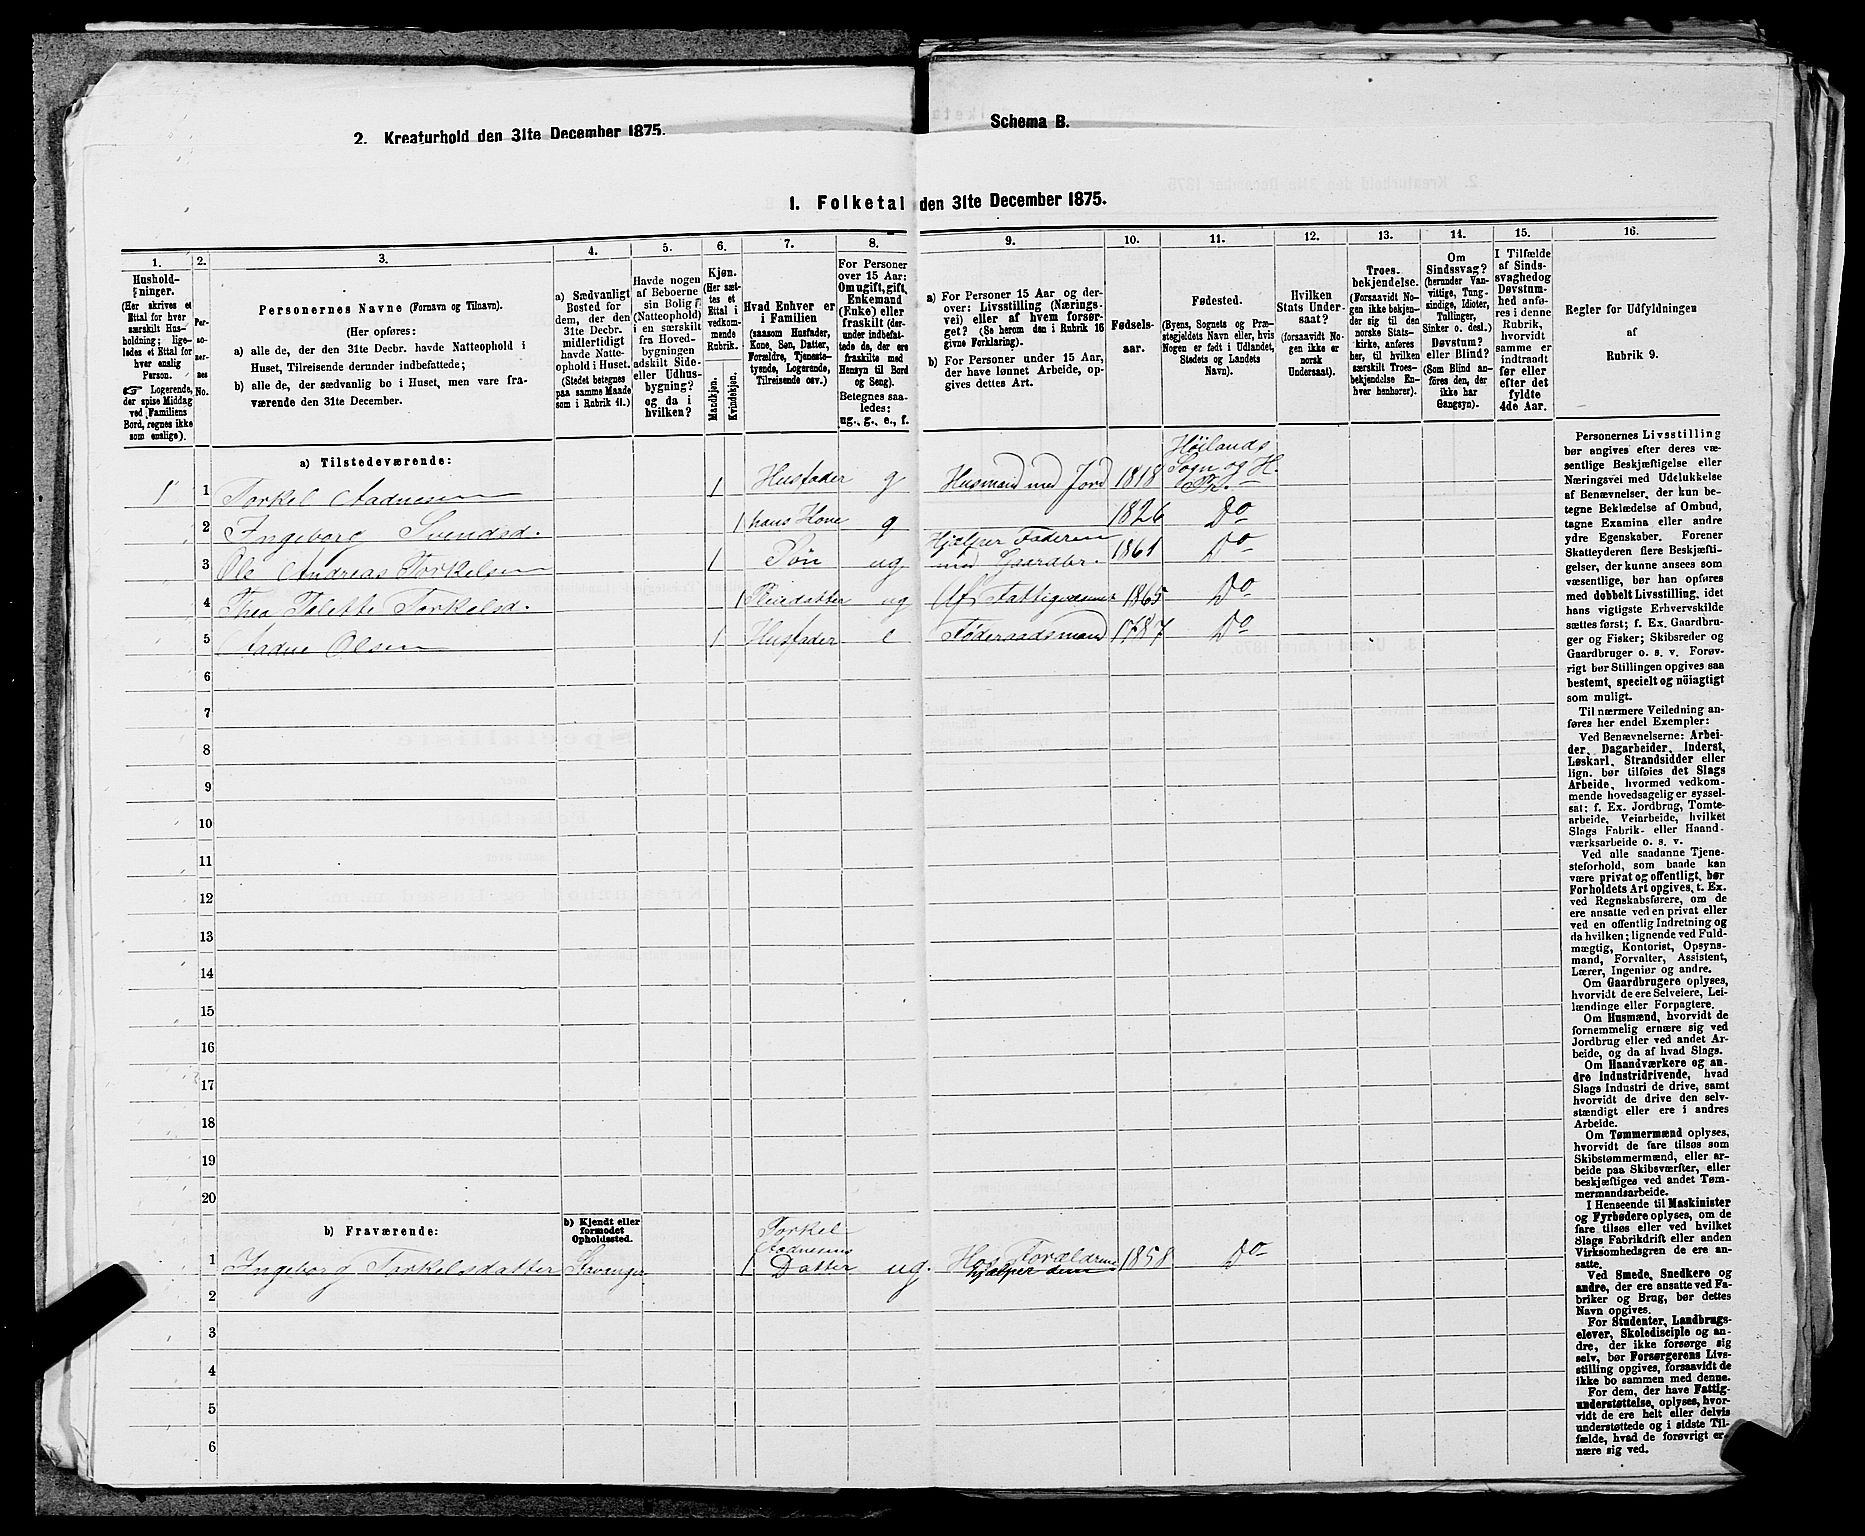 2. Kreaturhold den 31te December 1875.
Schema B.
1. Folketal den 31te December 1875.
1.
2.
3.
4.
5.
6.
7.
8.
9.
10.
11.
12.
13.
14.
15.
16.
Hushold-
ninger.
(Her skrives et
Ettal for hver
særskilt Hus-
holdning; lige-
ledes et Ettal for
hver enslig
Person.
☞ Logerende,
der spise Middag
ved Familiens
Bord, regnes ikke
som enslige).
Per-
so-
ner-
nes
No.
Personernes Navne (Fornavn og Tilnavn).
(Her opføres:
a) alle de, der den 31te Decbr. havde Natteophold i
Huset, Tilreisende derunder indbefattede;
b) alle de, der sædvanlig bo i Huset, men vare fra-
værende den 31te December.
a) Sædvanligt
Bosted for
dem, der den
31te Decbr.
midlertidigt
havde Natte-
ophold i Huset.
(Stedet betegnes
paa samme Maade
som i Rubrik 11.)
Havde nogen
af Beboerne
sin Bolig
(Natteophold)
i en særskilt
fra Hoved-
bygningen
adskilt Side-
eller Udhus-
bygning?
og da i
hvilken?
Kjøn.
(Her sæt-
tes et
Ettal i
vedkom-
mende
Rubrik.
Mandkjøn.
Kvindekjøn.
Hvad Enhver er
i Familien
(saasom Husfader,
Kone, Søn, Datter,
Forældre, Tjeneste-
tyende, Logerende,
Tilreisende osv.)
For Personer
over 15 Aar:
Om ugift, gift,
Enkemand
(Enke) eller
fraskilt (der-
under indbefat-
tede de, der ere
fraskilte med
Hensyn til Bord
og Seng).
Betegnes saa-
ledes:
ug., g., e., f.
a) For Personer 15 Aar og der-
over: Livsstilling (Nærings-
vei) eller af hvem forsør-
get? (Se herom den i Rubrik 16
givne Forklaring).
b) For Personer under 15 Aar,
der have lønnet Arbeide, op-
gives dettes Art.
Fødsels-
aar.
Fødested.
(Byens, Sognets og Præ-
stegjeldets Navn eller, hvis
Nogen er født i Udlandet,
Stedets og Landets
Navn).
Hvilken
Stats Under-
saat?
(forsaavidt No-
gen ikke er
norsk
Undersaat).
Troes-
bekjendelse.
(Forsaavidt No-
gen ikke bekjen-
der sig til den
norske Stats-
kirke, anføres
her, til hvilken
særskilt Troes-
bekjendelse En-
hver henhører).
Om
Sindssvag?
(herunder Van-
vittige, Tung-
sindige, Idioter,
Tullinger,
Sinker o. desl.)
Døvstum?
eller Blind?
(Som Blind an-
føres den, der
ikke har
Gangsyn).
I Tilfælde
af Sinds-
svaghed og
Døvstum-
hed anfø-
res i denne
Rubrik,
hvorvidt
samme er
indtraadt
før eller
efter det
fyldte
4de Aar.
Regler for Udfyldningen
af
Rubrik 9.
a) Tilstedeværende:
1 1 Torkel Aadnesen 1 Husfader g Husmand med Jord 1818 Høilands Sogn og H. Pr.
2 Ingeborg Svendsd. 1 hans Kone g 1826 Do
3 Ole Andreas Torkelsen 1 Søn ug Hjælper Faderen med Gaardbr. 1861 Do
4 Thea Tolette Torkelsd. 1 Pleiedatter ug Af Fattigvæsenet 1865 Do
5 Aadne Olsen 1 Husfader e Føderaadsmand 1787 Do
6
7
8
9
10
11
12
13
14
15
16
17
18
19
20
b) Fraværende:
b) Kjendt eller
formodet
Opholdssted.
1 Ingeborg Torkelsdatter Stavanger 1 Torkel Aadnesens Datter ug. Hos Forældrene hjælper dem 1858 Do
2
3
4
5
6
Personernes Livsstilling
bør angives efter deres væ-
sentlige Beskjæftigelse eller
Næringsvei med Udelukkelse
af Benævnelser, der kun be-
tegne Beklædelse af Ombud,
tagne Examina eller andre
ydre Egenskaber. Forener
Skatteyderen flere Beskjæfti-
gelser, der kunne ansees som
væsentlige, bør han opføres
med dobbelt Livsstilling, idet
hans vigtigste Erhvervskilde
sættes først; f. Ex. Gaardbru-
ger og Fisker; Skibsreder og
Gaardbruger o. s. v. Forøv-
rigt bør Stillingen opgives saa
bestemt, specielt og nöiagtigt
som muligt.
Til nærmere Veiledning an-
føres her endel Exempler:
Ved Benævnelserne: Arbei-
der, Dagarbeider, Inderst,
Løskarl, Strandsidder eller
lign. bør tilføies det Slags
Arbeide, hvormed vedkom-
mende hovedsagelig er syssel-
sat: f. Ex. Jordbrug, Tomte-
arbeide, Veiarbeide, hvilket
Slags Fabrik- eller Haand-
værksarbeide o. s. v.
Ved alle saadanne Tjene-
steforhold, som baade kan
være privat og offentligt, bør
Forholdets Art opgives, t. Ex.
ved Regnskabsførere, om de
ere ansatte ved en privat eller
ved en offentlig Indretning og
da hvilken; lignende ved Fuld-
mægtig, Kontorist, Opsyns-
mand, Forvalter, Assistent,
Lærer, Ingeniør og andre.
Om Gaardbrugere oplyses,
hvorvidt de ere Selveiere, Lei-
lændinge eller Forpagtere.
Om Husmænd, hvorvidt de
fornemmelig ernære sig ved
Jordbrug eller ved andet Ar-
beide, og da af hvad Slags.
Om Haandværkere og an-
dre Industridrivende, hvad
Slags Industri de drive, samt
hvorvidt de drive den selv-
stændigt eller ere i andres
Arbeide.
Om Tømmermænd oplyses,
hvorvidt de fare tilsøs som
Skibstømmermænd, eller ar-
beide paa Skibsværfter, eller
beskjæftiges ved andet Tøm-
mermandsarbeide.
I Henseende til Maskinister
og Fyrbødere oplyses, om de
fare tilsøs eller ved hvilket
Slags Fabrikdrift eller anden
Virksomhedsgren de ere an-
satte.
Ved Smede, Snedkere og
andre, der ere ansatte ved Fa-
briker og Brug, bør dettes
Navn opgives.
For Studenter, Landbrugs-
elever, Skoledisciple og an-
dre, der ikke forsørge sig
selv, bør Forsørgerens Livs-
stilling opgives, forsaavidt de
ikke bo sammen med denne.
For dem, der have Fattig-
understøttelse, oplyses, hvor-
vidt de ere helt eller delvis
understøttede og i sidste Til-
fælde, hvad de forøvrigt er-
nære sig ved.